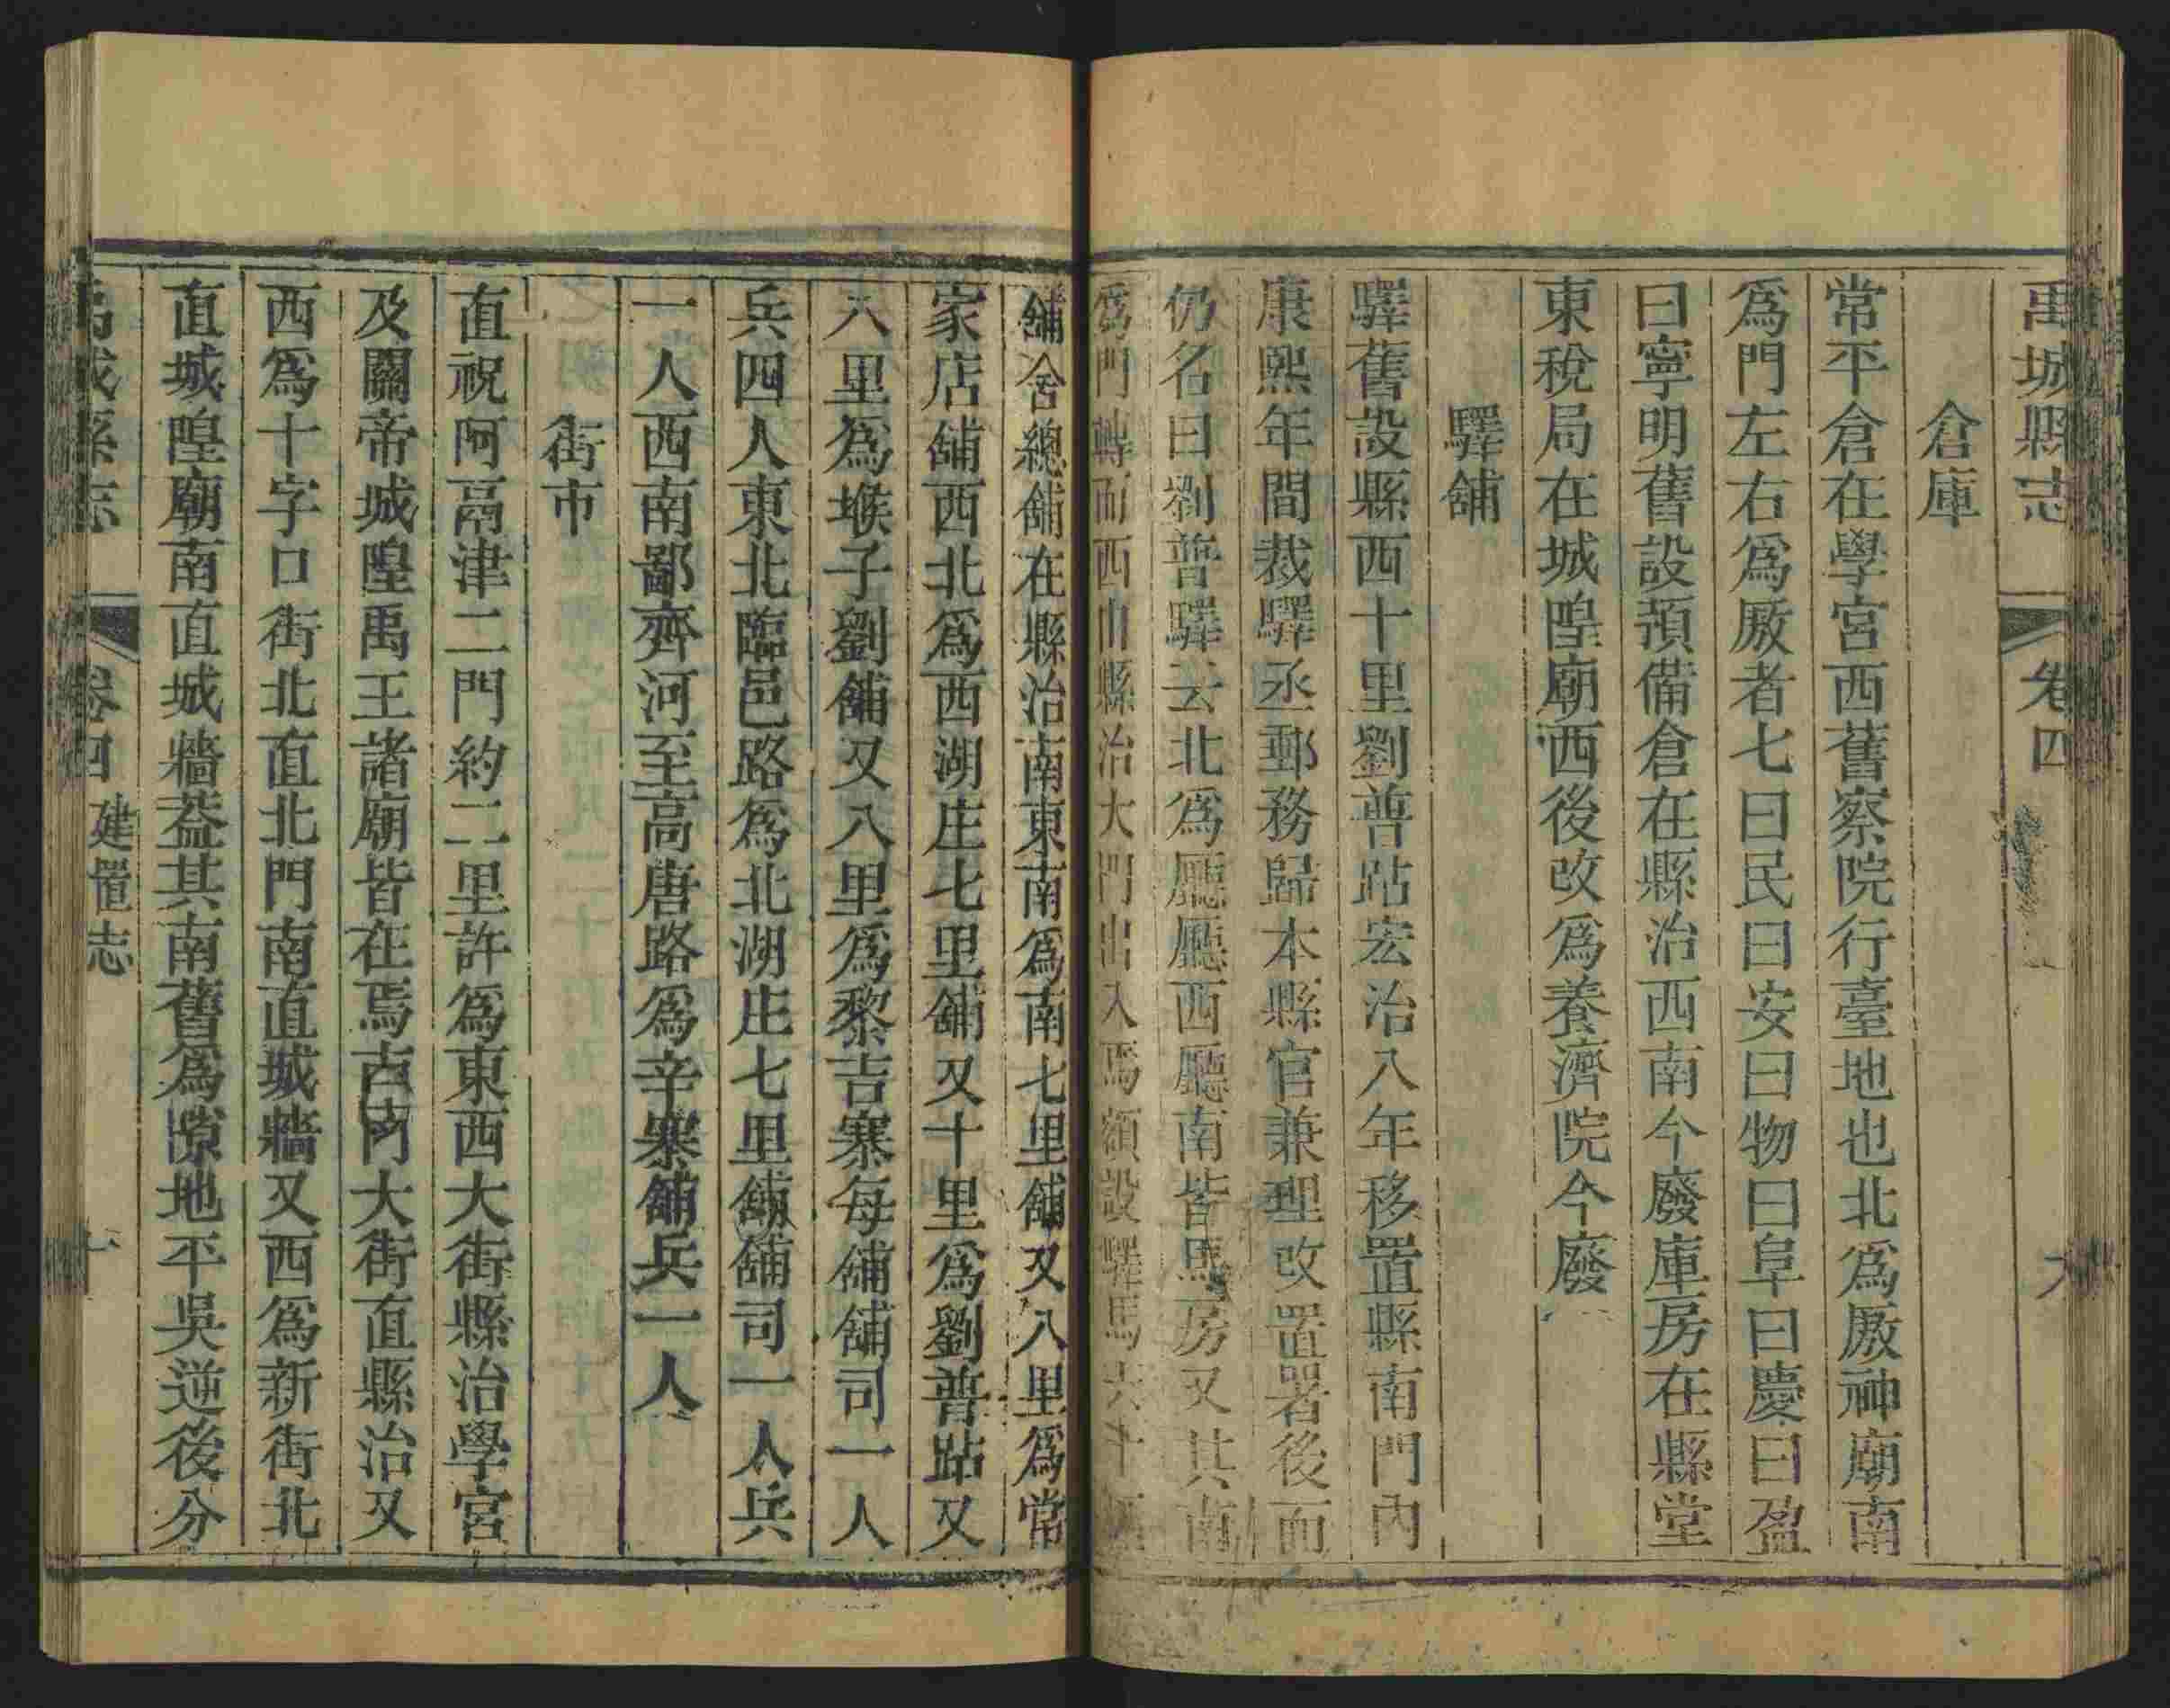 禹城縣志 卷四
倉庫
常平倉在學宮西舊察院行臺地也北爲厫神廟南
爲門左右爲厫者七曰民曰安曰物曰阜曰慶曰盈
曰寧明舊設預備倉在縣治西南今廢庫房在縣堂
東稅局在城隍廟西後改爲養濟院今廢
驛舖
驛舊設縣西十里劉普跕宏治八年移置縣南門內
康熙年間裁驛丞郵務歸本縣官兼理改置署後而
仍名曰劉普驛云北爲廳廳西廳南皆馬房又其南
爲門轉而西由縣治大門出入焉額設驛馬六十
舖舍總舖在縣治南東南爲南七里舖又八里爲常
家店舖西北爲西湖庄七里舖又十里爲劉普跕又
八里爲堠子劉舖又八里爲黎吉寨每舖舖司一人
兵四人東北臨邑路爲北湖庄七里舖舖司一人兵
一人西南鄙齊河至高唐路爲辛寨舖兵一人
街市
直祝阿鬲津二門約二里許爲東西大街縣治學宮
及關帝城隍禹王諸廟皆在焉古南門大街直縣治又
西爲十字口街北直北門南直城牆又西爲新街北
直城隍廟南直城牆葢其南舊爲隙地平吳逆後分
禹城縣志 卷四 建置志